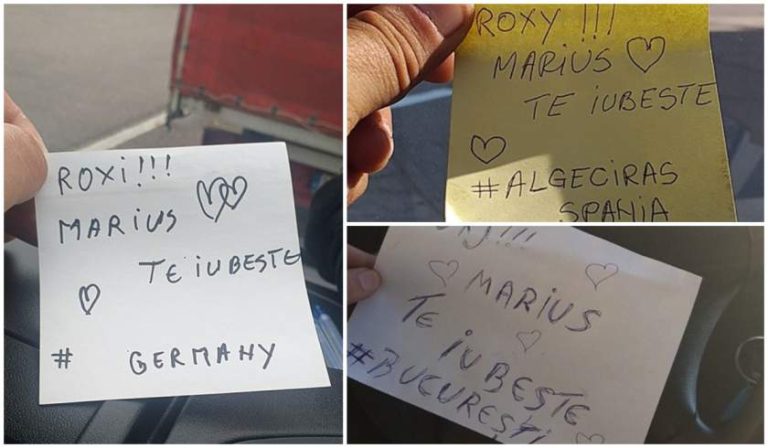 ROXI!!!
MARIUS
TE IUBESTE
# GERMANY
ROXY !!!
MARIUS
TE IUBESTE
#ALGECIRAS
SPANIA
MARIUS
TE
IUBESTE
#BUCURESTI